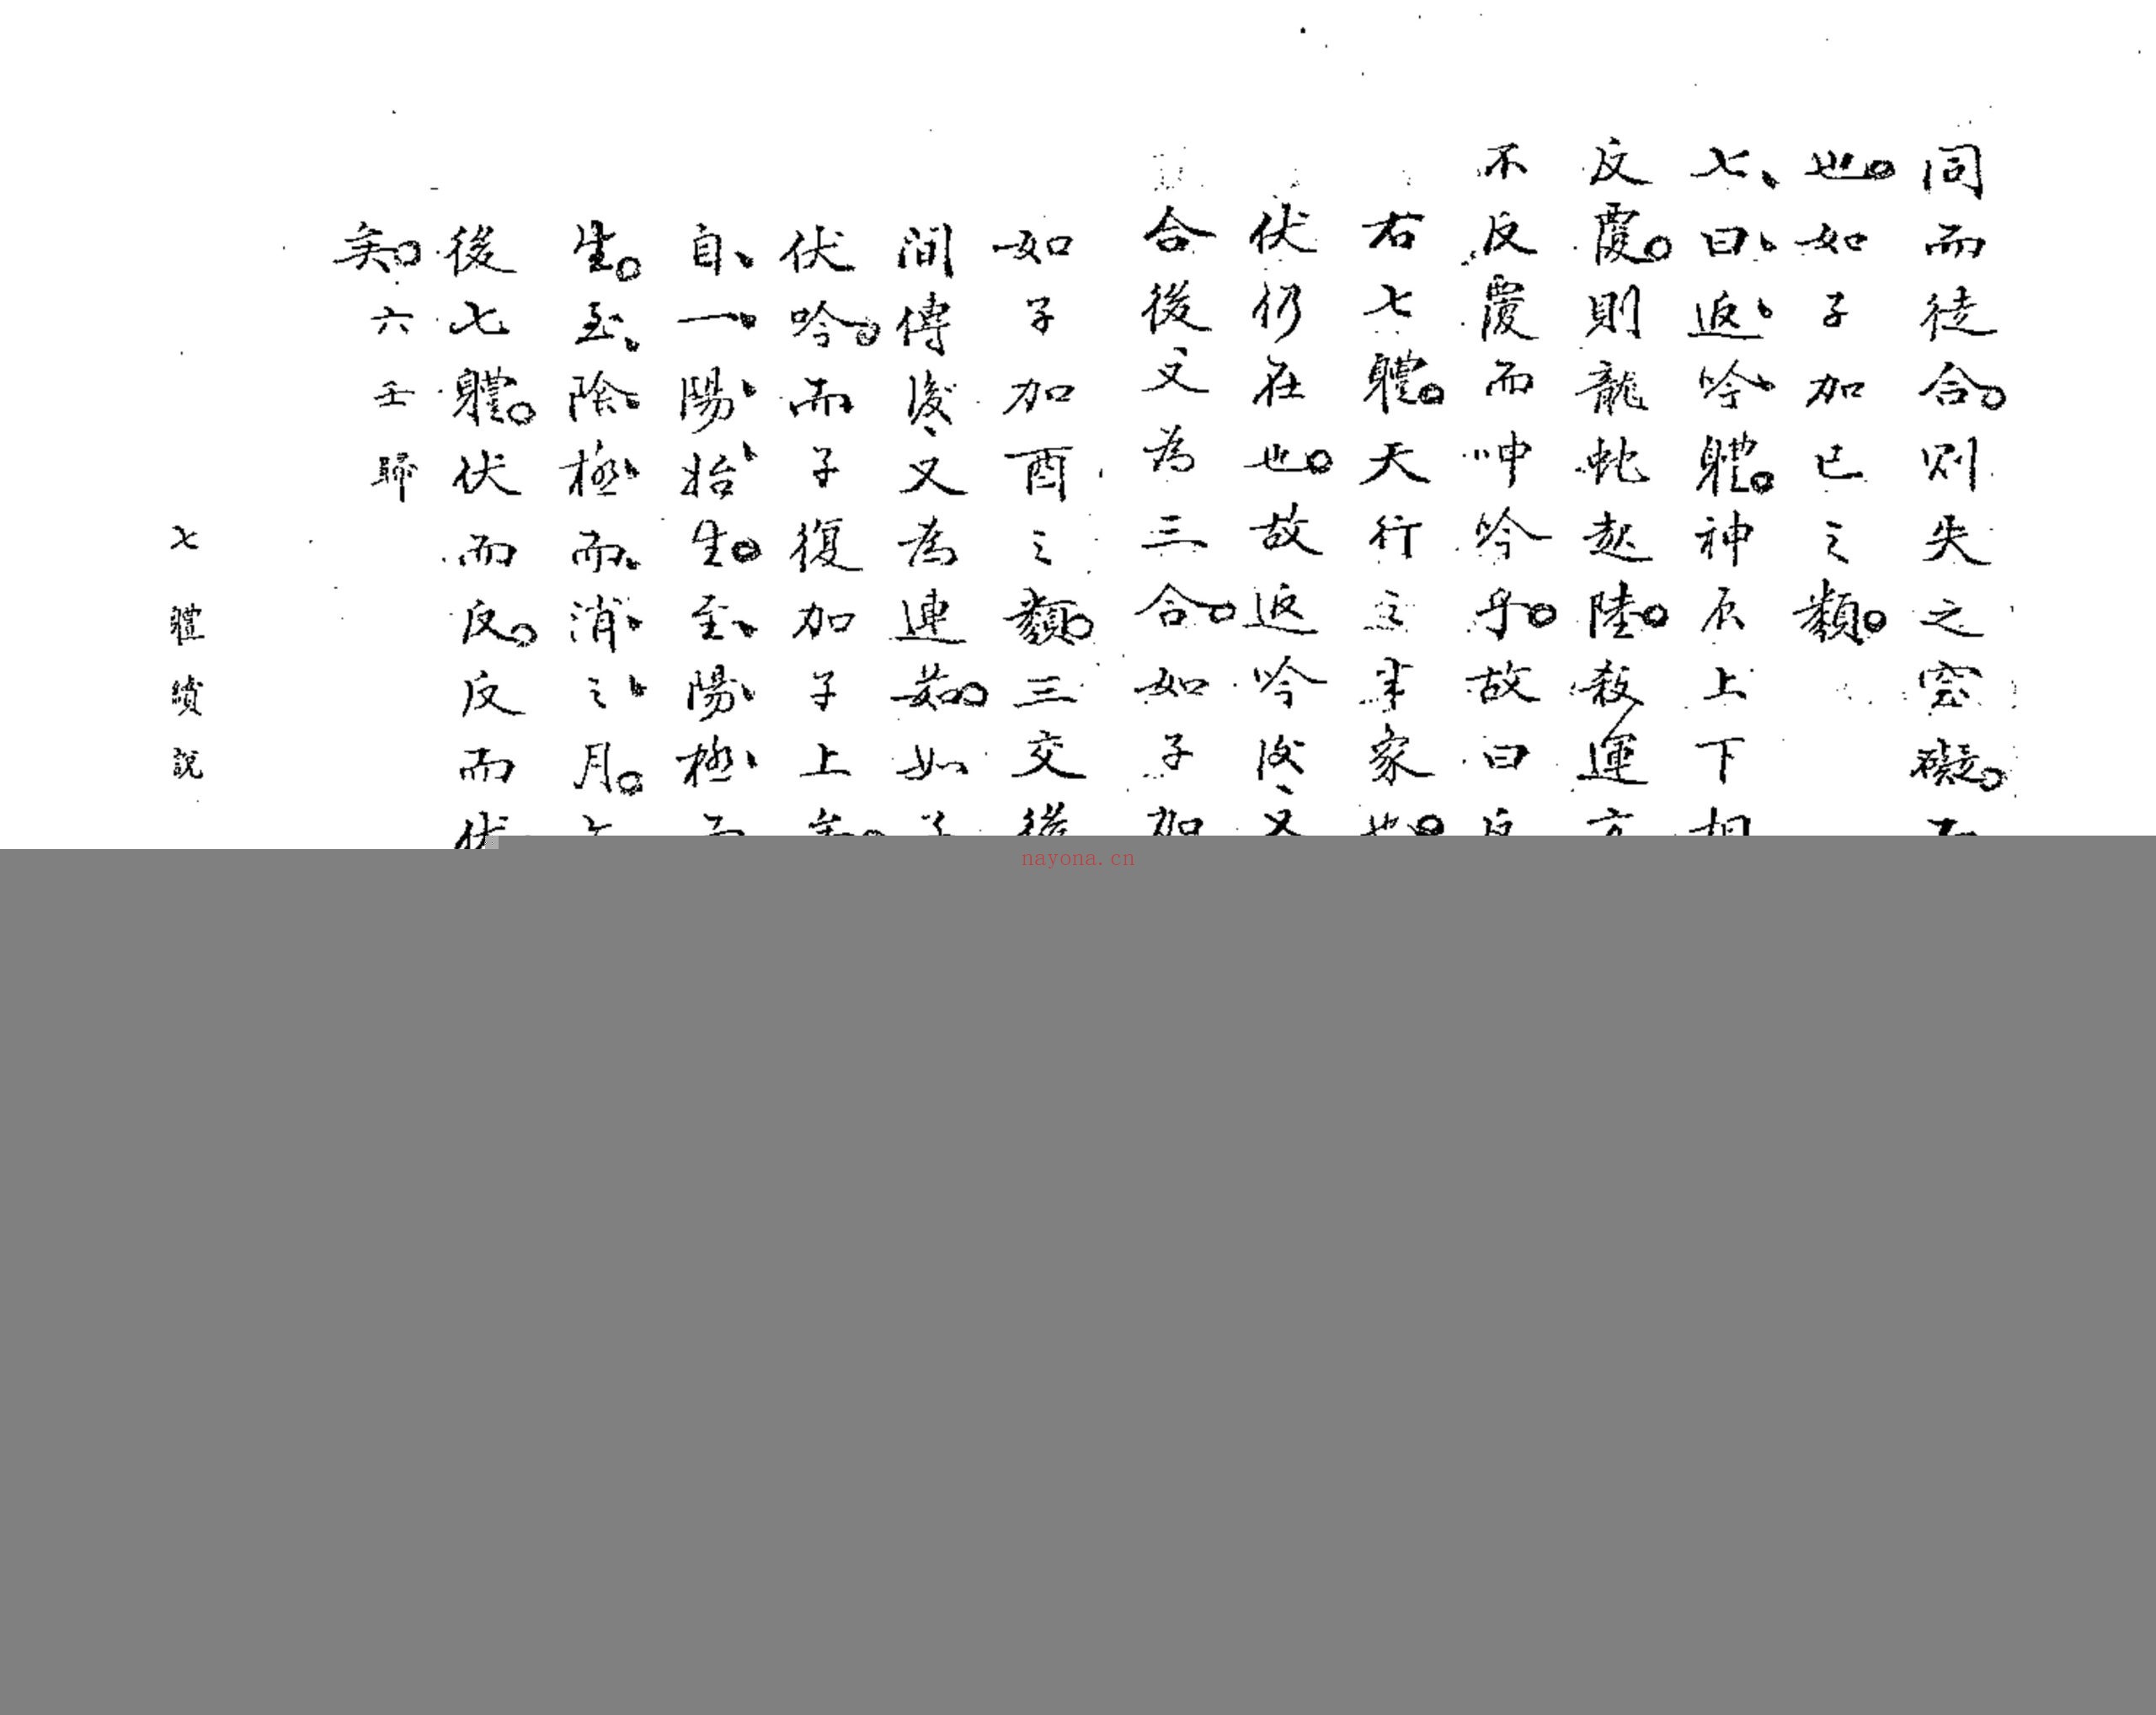 同而徒合。則失之空礙。
也。如子加巳之類。
七、曰、返、吟、體。神辰上下相
反覆。則龍蛇起陸。殺運方
不反覆而呻吟乎。故曰反
右七體。天行之來家也。
伏仍在也。故返吟後、又
合後又為三合。如子加
如子加酉之類。三交後
間傳後、又為連茹。如子
伏吟。而子復加子上矣。
自、一、陽、始、生。至、陽、極、而
生。至、陰、極、而、消、之、月。
後七體。伏而反。反而伏
矣。
六壬歸
七體續說
nayona.cn